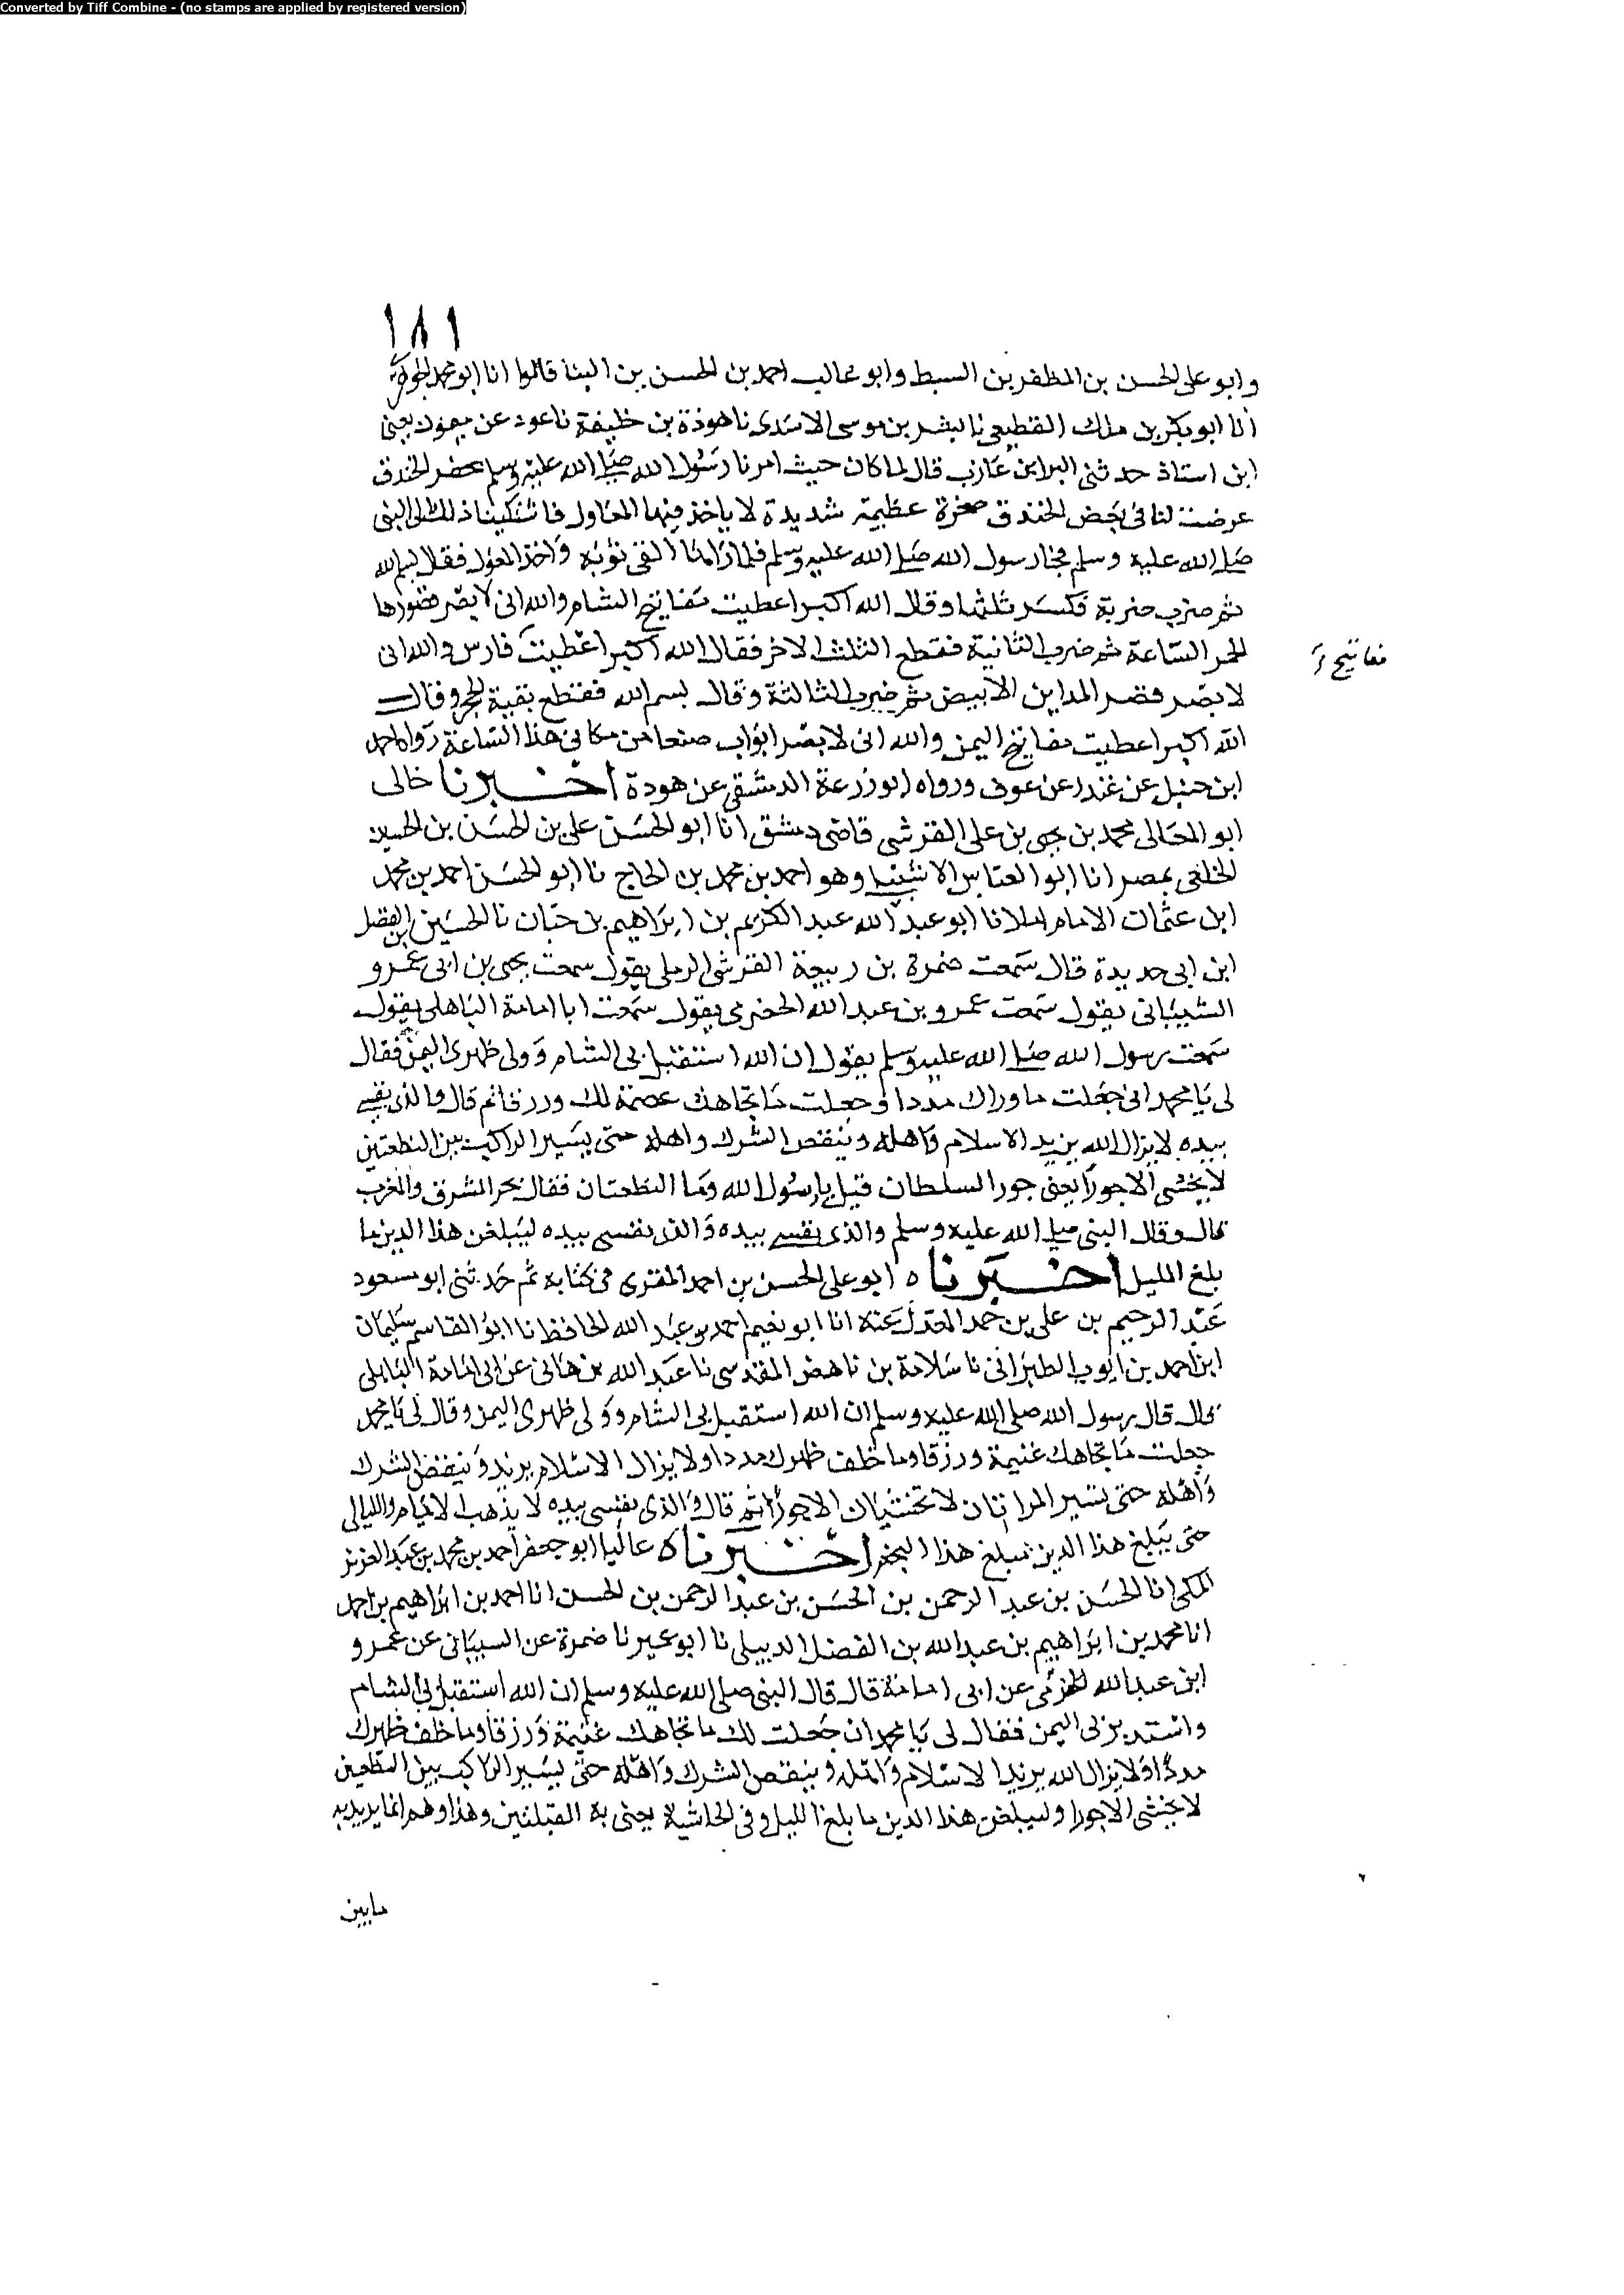 Converted by Tiff Combine - (no stamps are applied by registered version)
١٨١
وابو على الحسن بن المظفر بن السبط وابو غالب احمد بن الحسن بن البنا قالوا انا ابو محمد الجوهرى
انا ابو بكر بن ملك القطيعى نا بشر بن موسى الاسدى نا هوذة بن خليفة نا عوف عن ميمون يعنى
ابن استاذ حدثنى البرا بن عازب قال لما كان حيث امرنا رسول الله صلى الله عليه وسلم بحفر الخندق
عرضت لنا فى بعض الخندق صخرة عظيمة شديدة لا ياخذ فيها المعاول فاشتكينا ذلك الى النبى
صلى الله عليه وسلم فجا رسول الله صلى الله عليه وسلم فلما راها القى ثوبه واخذ المعول فقال بسم الله
ثم ضرب ضربة فكسر ثلثها وقال الله اكبر اعطيت مفاتيح الشام والله انى لابصر قصورها
الحمر الساعة ثم ضرب الثانية فقطع الثلث الاخر فقال الله اكبر اعطيت فارس والله انى
مفاتيح
لابصر قصر المداين الابيض ثم ضرب الثالثة وقال بسم الله فقطع بقية الحجر وقال
الله اكبر اعطيت مفاتيح اليمن والله انى لابصر ابواب صنعا من مكانى هذا الساعة رواه احمد
ابن حنبل عن غندر عن عوف ورواه ابو زرعة الدمشقى عن هودة اخبرنا خالى
ابو المعالى محمد بن يحيى بن على القرشى قاضى دمشق انا ابو الحسن على بن الحسن بن الحسين
الخلعى بمصر انا ابو العباس الاشبيلى وهو احمد بن محمد بن الحاج نا ابو الحسن احمد بن محمد
ابن عثمان الامام املانا ابو عبد الله عبد الكريم بن ابراهيم بن حبان نا الحسين بن الفضل
ابن ابى حديدة قال سمعت ضمرة بن ربيعة القرشى الرملى يقول سمعت يحيى بن ابى عمرو
الشيبانى يقول سمعت عمرو بن عبد الله الحضرمى يقول سمعت ابا امامة الباهلى يقول
سمعت رسول الله صلى الله عليه وسلم يقول ان الله استقبل بى الشام وولى ظهرى اليمن فقال
لى يا محمد انى جعلت ما وراك مددا وجعلت ما تجاهك عصمة لك ورزقا ثم قال والذى نفسى
بيده لا يزال الله يزيد الاسلام واهله وينقص الشرك واهله حتى يسير الراكب بين النطفتين
لا يخشى الا جورا يعنى جور السلطان قيل يا رسول الله وما النطفتان فقال بحر المشرق والمغرب
قال وقال النبى صلى الله عليه وسلم والذى نفسى بيده والذى نفسى بيده ليبلغن هذا الدين ما
بلغ الليل اخبرناه ابو على الحسن بن احمد المقرى فى كتابه ثم حدثنى ابو مسعود
عبد الرحيم بن على بن حمد المعدل عنه انا ابو نعيم احمد بن عبد الله الحافظ نا ابو القاسم سليمان
ابن احمد بن ايوب الطبرانى نا سلامة بن ناهض المقدسى نا عبد الله بن هانى عن ابى امامة الباهلى
قال قال رسول الله صلى الله عليه وسلم ان الله استقبل بى الشام وولى ظهرى اليمن وقال لى يا محمد
جعلت ما تجاهك غنيمة ورزقا وما خلف ظهرك مددا ولا يزال الاسلام يزيد وينقص الشرك
واهله حتى تسير المراتان لا تخشيان الا جورا ثم قال والذى نفسى بيده لا يذهب الايام والليالى
حتى يبلغ هذا الدين مبلغ هذا النجم اخبرناه عاليا ابو جعفر احمد بن محمد بن عبد العزيز
المكى انا الحسن بن عبد الرحمن بن الحسن بن عبد الرحمن بن الحسن انا احمد بن ابراهيم بن احمد
انا محمد بن ابراهيم بن عبد الله بن الفضل الديبلى نا ابو عمير نا ضمرة عن السيبانى عن عمرو
ابن عبد الله عن ابى امامة قال قال النبى صلى الله عليه وسلم ان الله استقبل بى الشام
واستدبر بى اليمن فقال لى يا محمد ان جعلت لك ما تجاهك غنيمة ورزقا وما خلف ظهرك
مددا ولا يزال الله يزيد الاسلام واهله وينقص الشرك واهله حتى يسير الراكب بين النطفتين
لا يخشى الا جورا وليبلغن هذا الدين ما بلغ الليل وفى الحاشية يعنى به القبلتين وهذا وهم انما يريد به
مابين